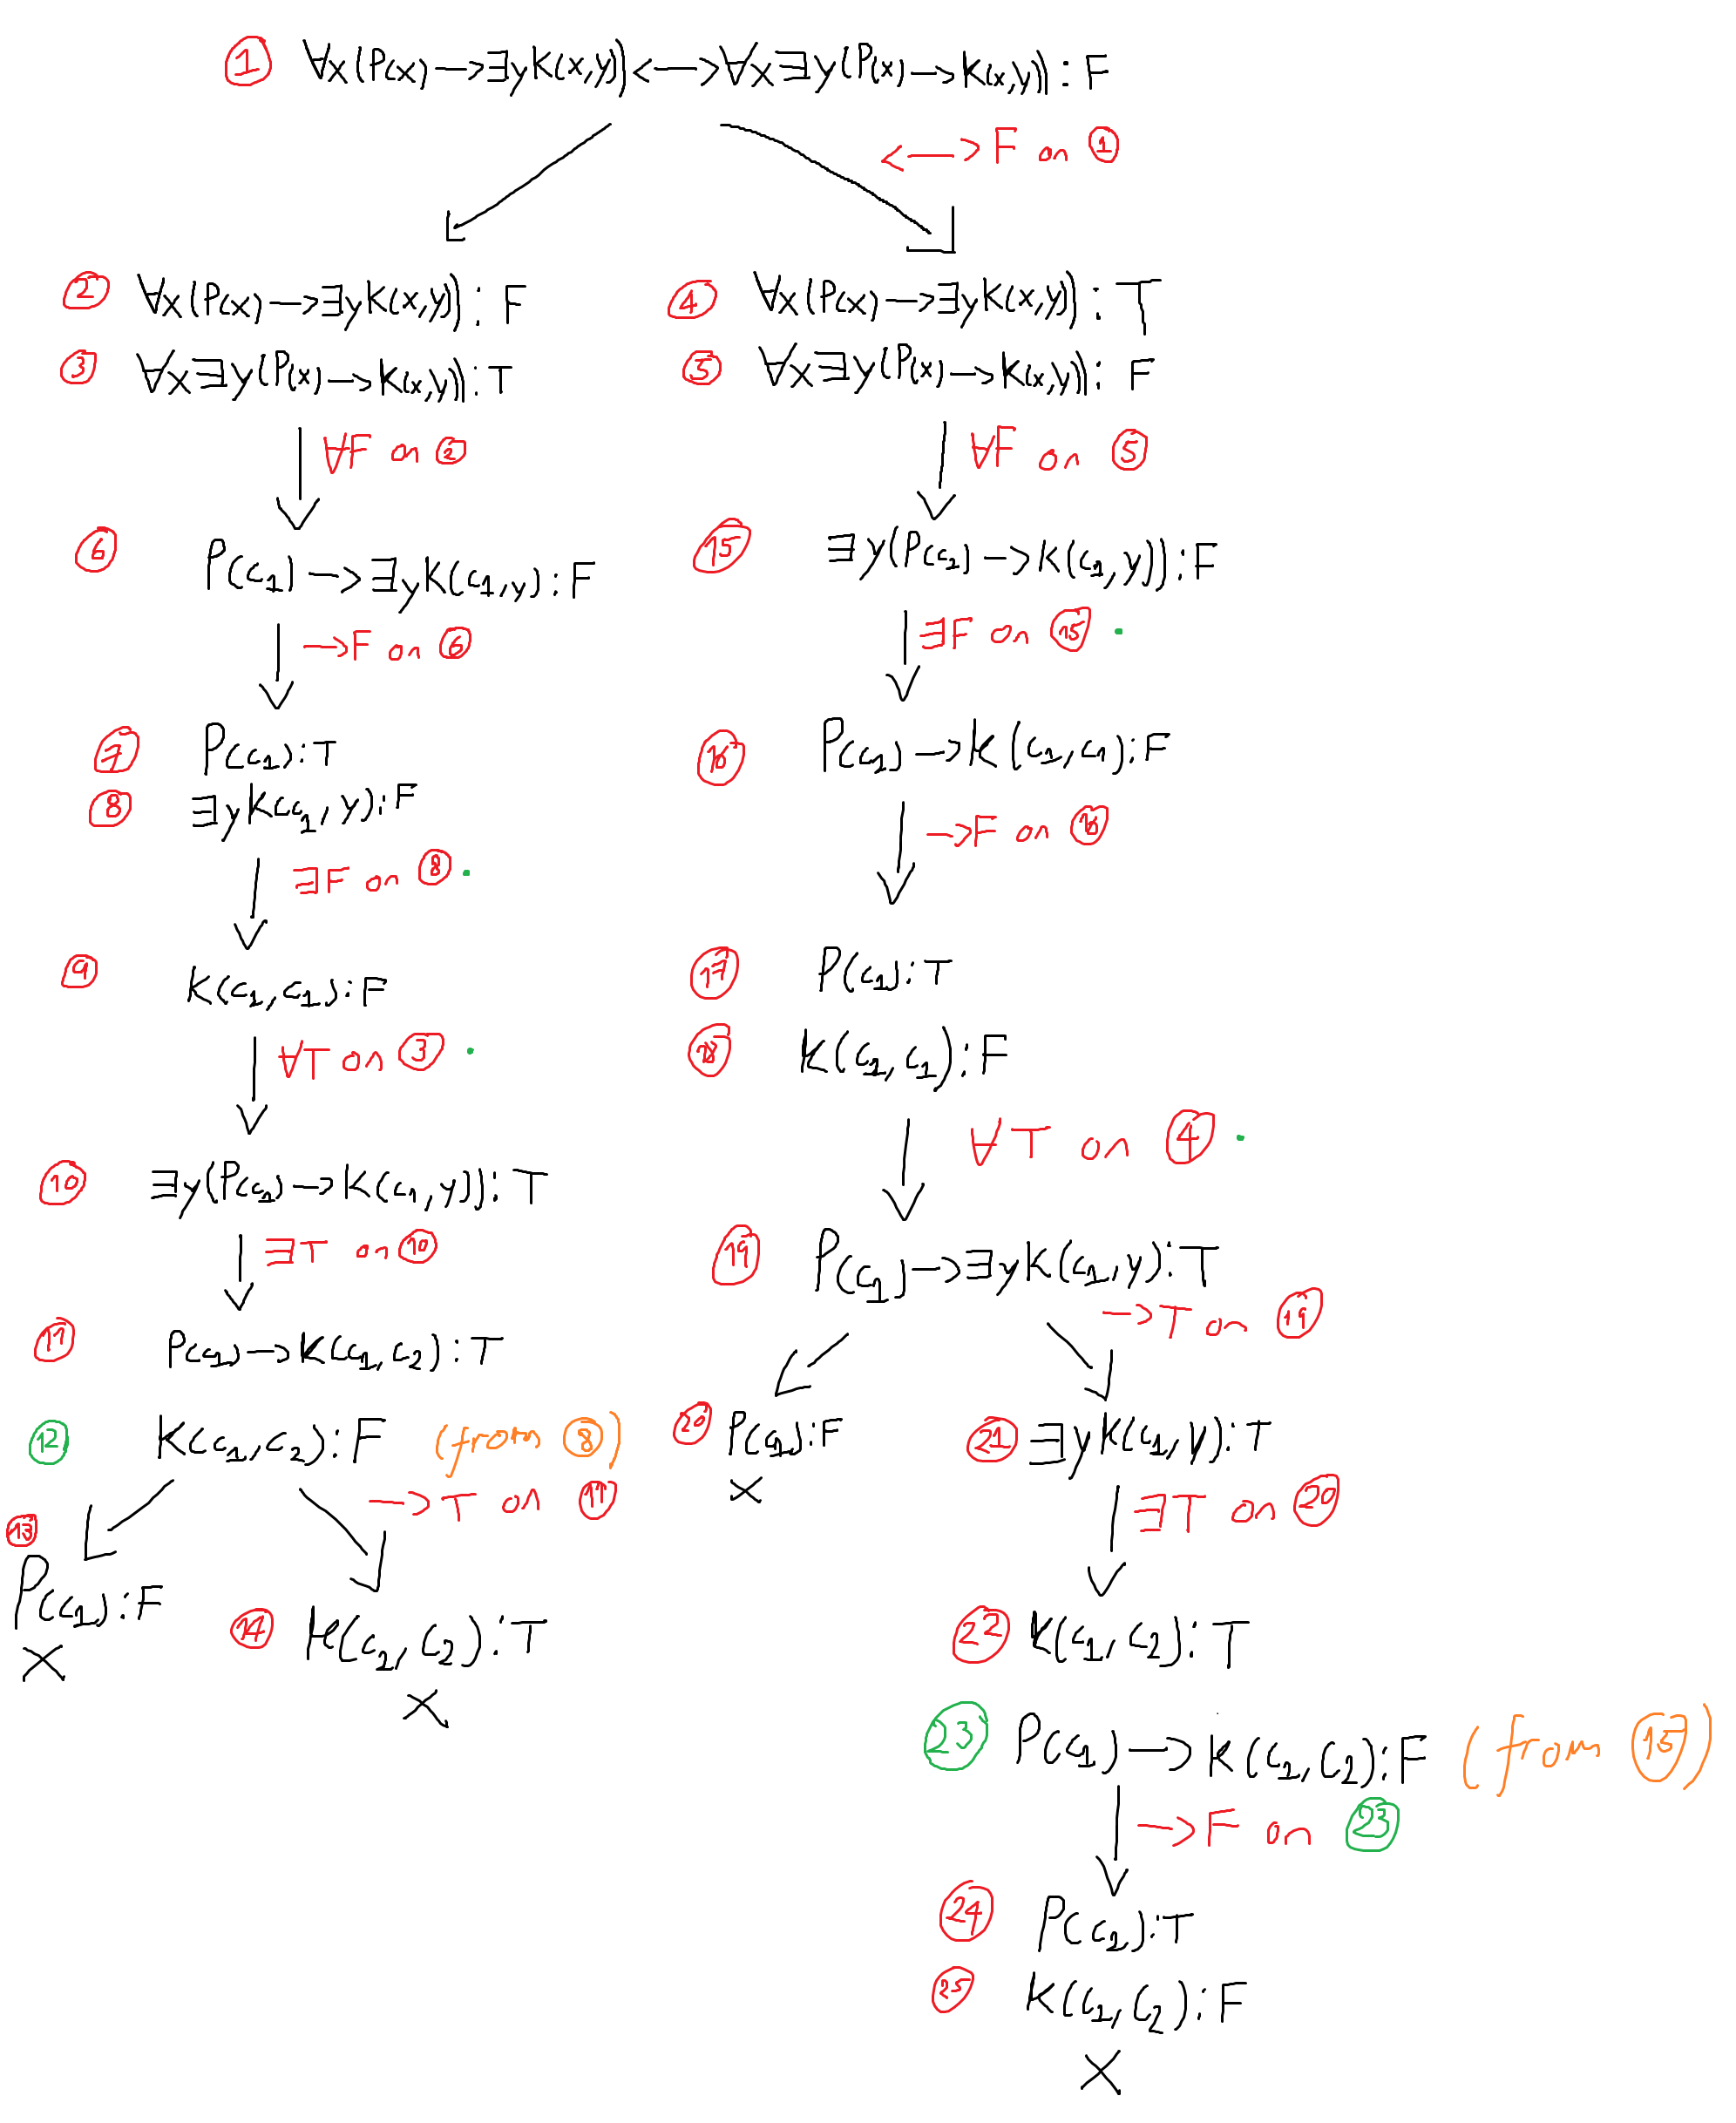 ① ∀x(P(x)→∃yK(x,y))<—>∀x∃y(P(x)→K(x,y)):F
<—>F on ①
② ∀x(P(x)→∃yK(x,y)):F
③ ∀x∃y(P(x)→K(x,y)):T
∀F on ②
⑥ P(c₁)→∃yK(c₁,y):F
→F on ⑥
⑦ P(c₁):T
⑧ ∃yK(c₁,y):F
∃F on ⑧.
⑨ K(c₁,c₁):F
∀T on ③.
⑩ ∃y(P(c₁)→K(c₁,y)):T
∃T on ⑩
⑪ P(c₁)→K(c₁,c₂):T
⑫ K(c₁,c₂):F (from ⑧)
→T on ⑪
⑬ P(c₁):F
X
⑭ K(c₁,c₂):T
X
④ ∀x(P(x)→∃yK(x,y)):T
⑤ ∀x∃y(P(x)→K(x,y)):F
∀F on ⑤
⑮ ∃y(P(c₁)→K(c₁,y)):F
∃F on ⑮.
⑯ P(c₁)→K(c₁,c₁):F
→F on ⑯
⑰ P(c₁):T
⑱ K(c₁,c₁):F
∀T on ④.
⑲ P(c₁)→∃yK(c₁,y):T
→T on ⑲
⑳ P(c₁):F
X
㉑ ∃yK(c₁,y):T
∃T on ⑳
㉒ K(c₁,c₂):T
㉓ P(c₁)→K(c₁,c₂):F (from ⑮)
→F on ㉓
㉔ P(c₁):T
㉕ K(c₁,c₂):F
X